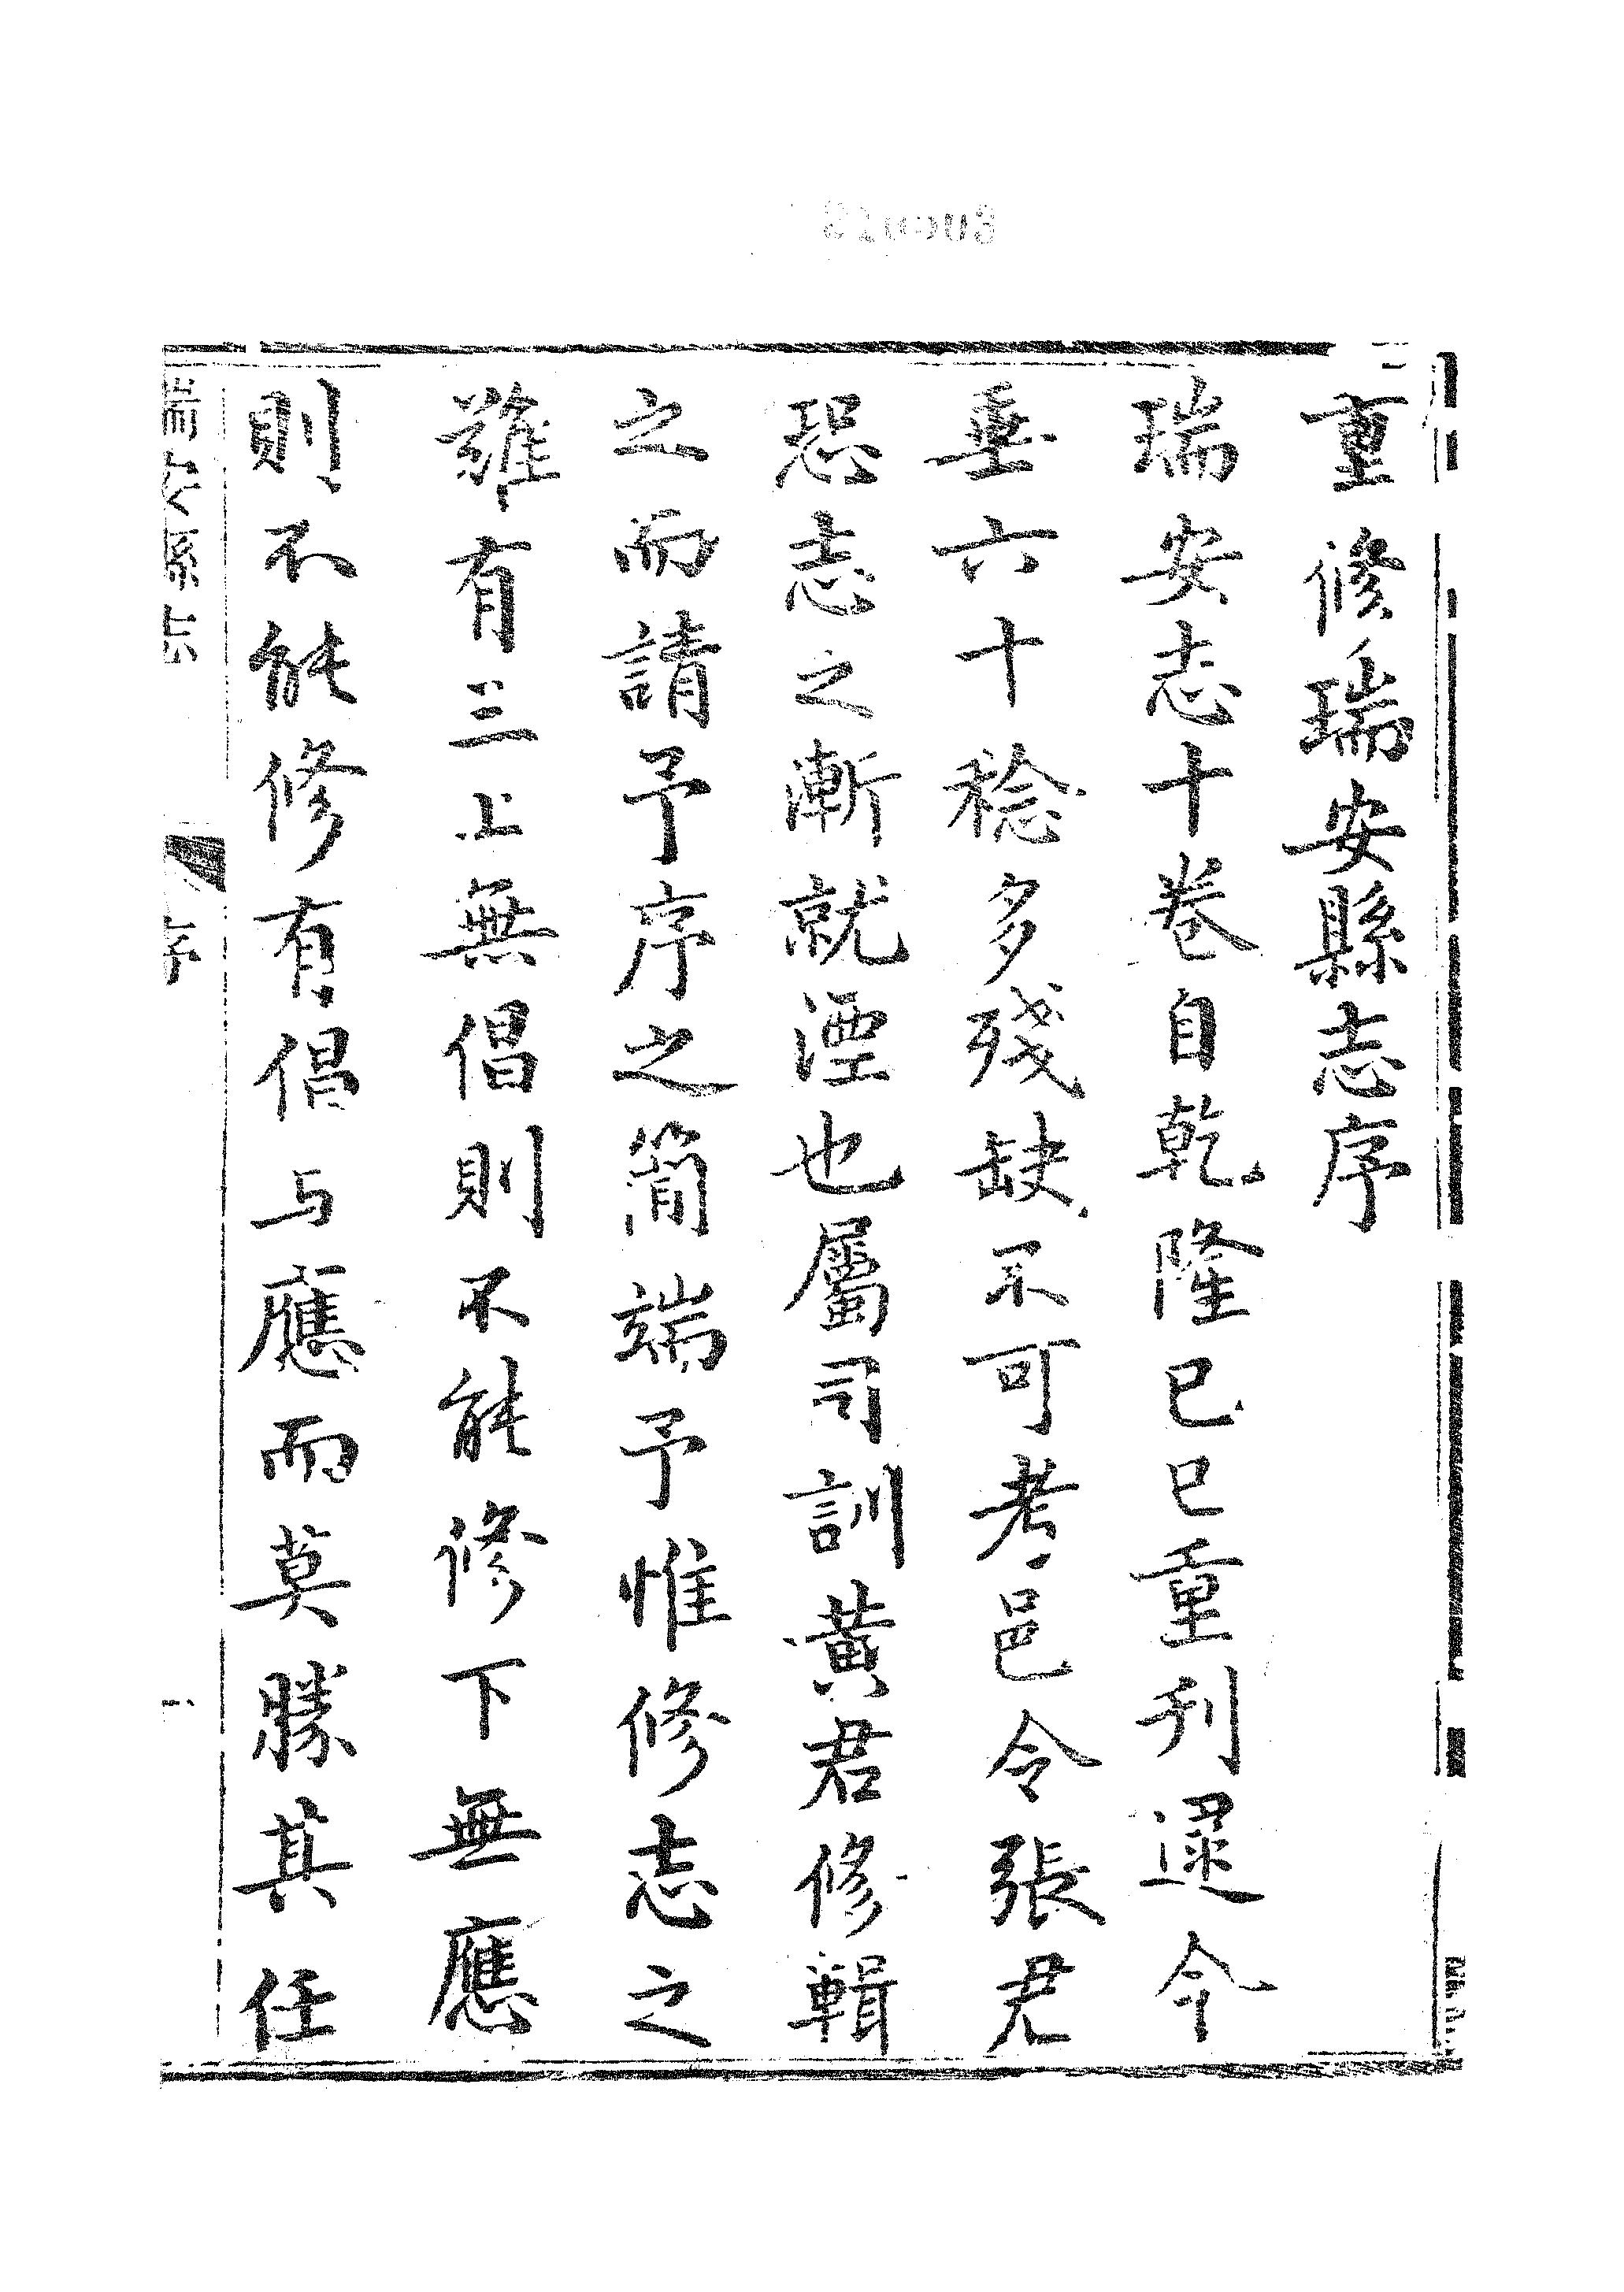 重修瑞安縣志序
瑞安志十卷自乾隆己巳重刊逮今
垂六十稔多殘缺不可考邑令張君
恐志之漸就湮也屬司訓黃君修輯
之而請予序之簡端予惟修志之
難有三上無倡則不能修下無應
則不能修有倡与應而莫勝其任
瑞安縣志 序 一